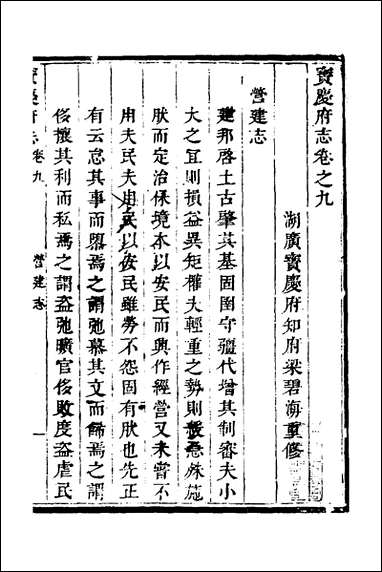 寶慶府志卷之九
湖廣寶慶府知府梁碧海重修
營建志
建邦啓土古肇其基固圉守疆代增其制審夫小
大之宜則損益異矩權夫輕重之勢則緩急殊施
狀而定治保境本以安民而興作經營又未嘗不
用夫民夫用民以安民雖勞不怨固有狀也先正
有云怠其事而隳焉之謂弛慕其文而飾焉之謂
侈攘其利而私焉之謂盜弛曠官侈敗度盜虐民
寶慶府志卷九
營建志
一